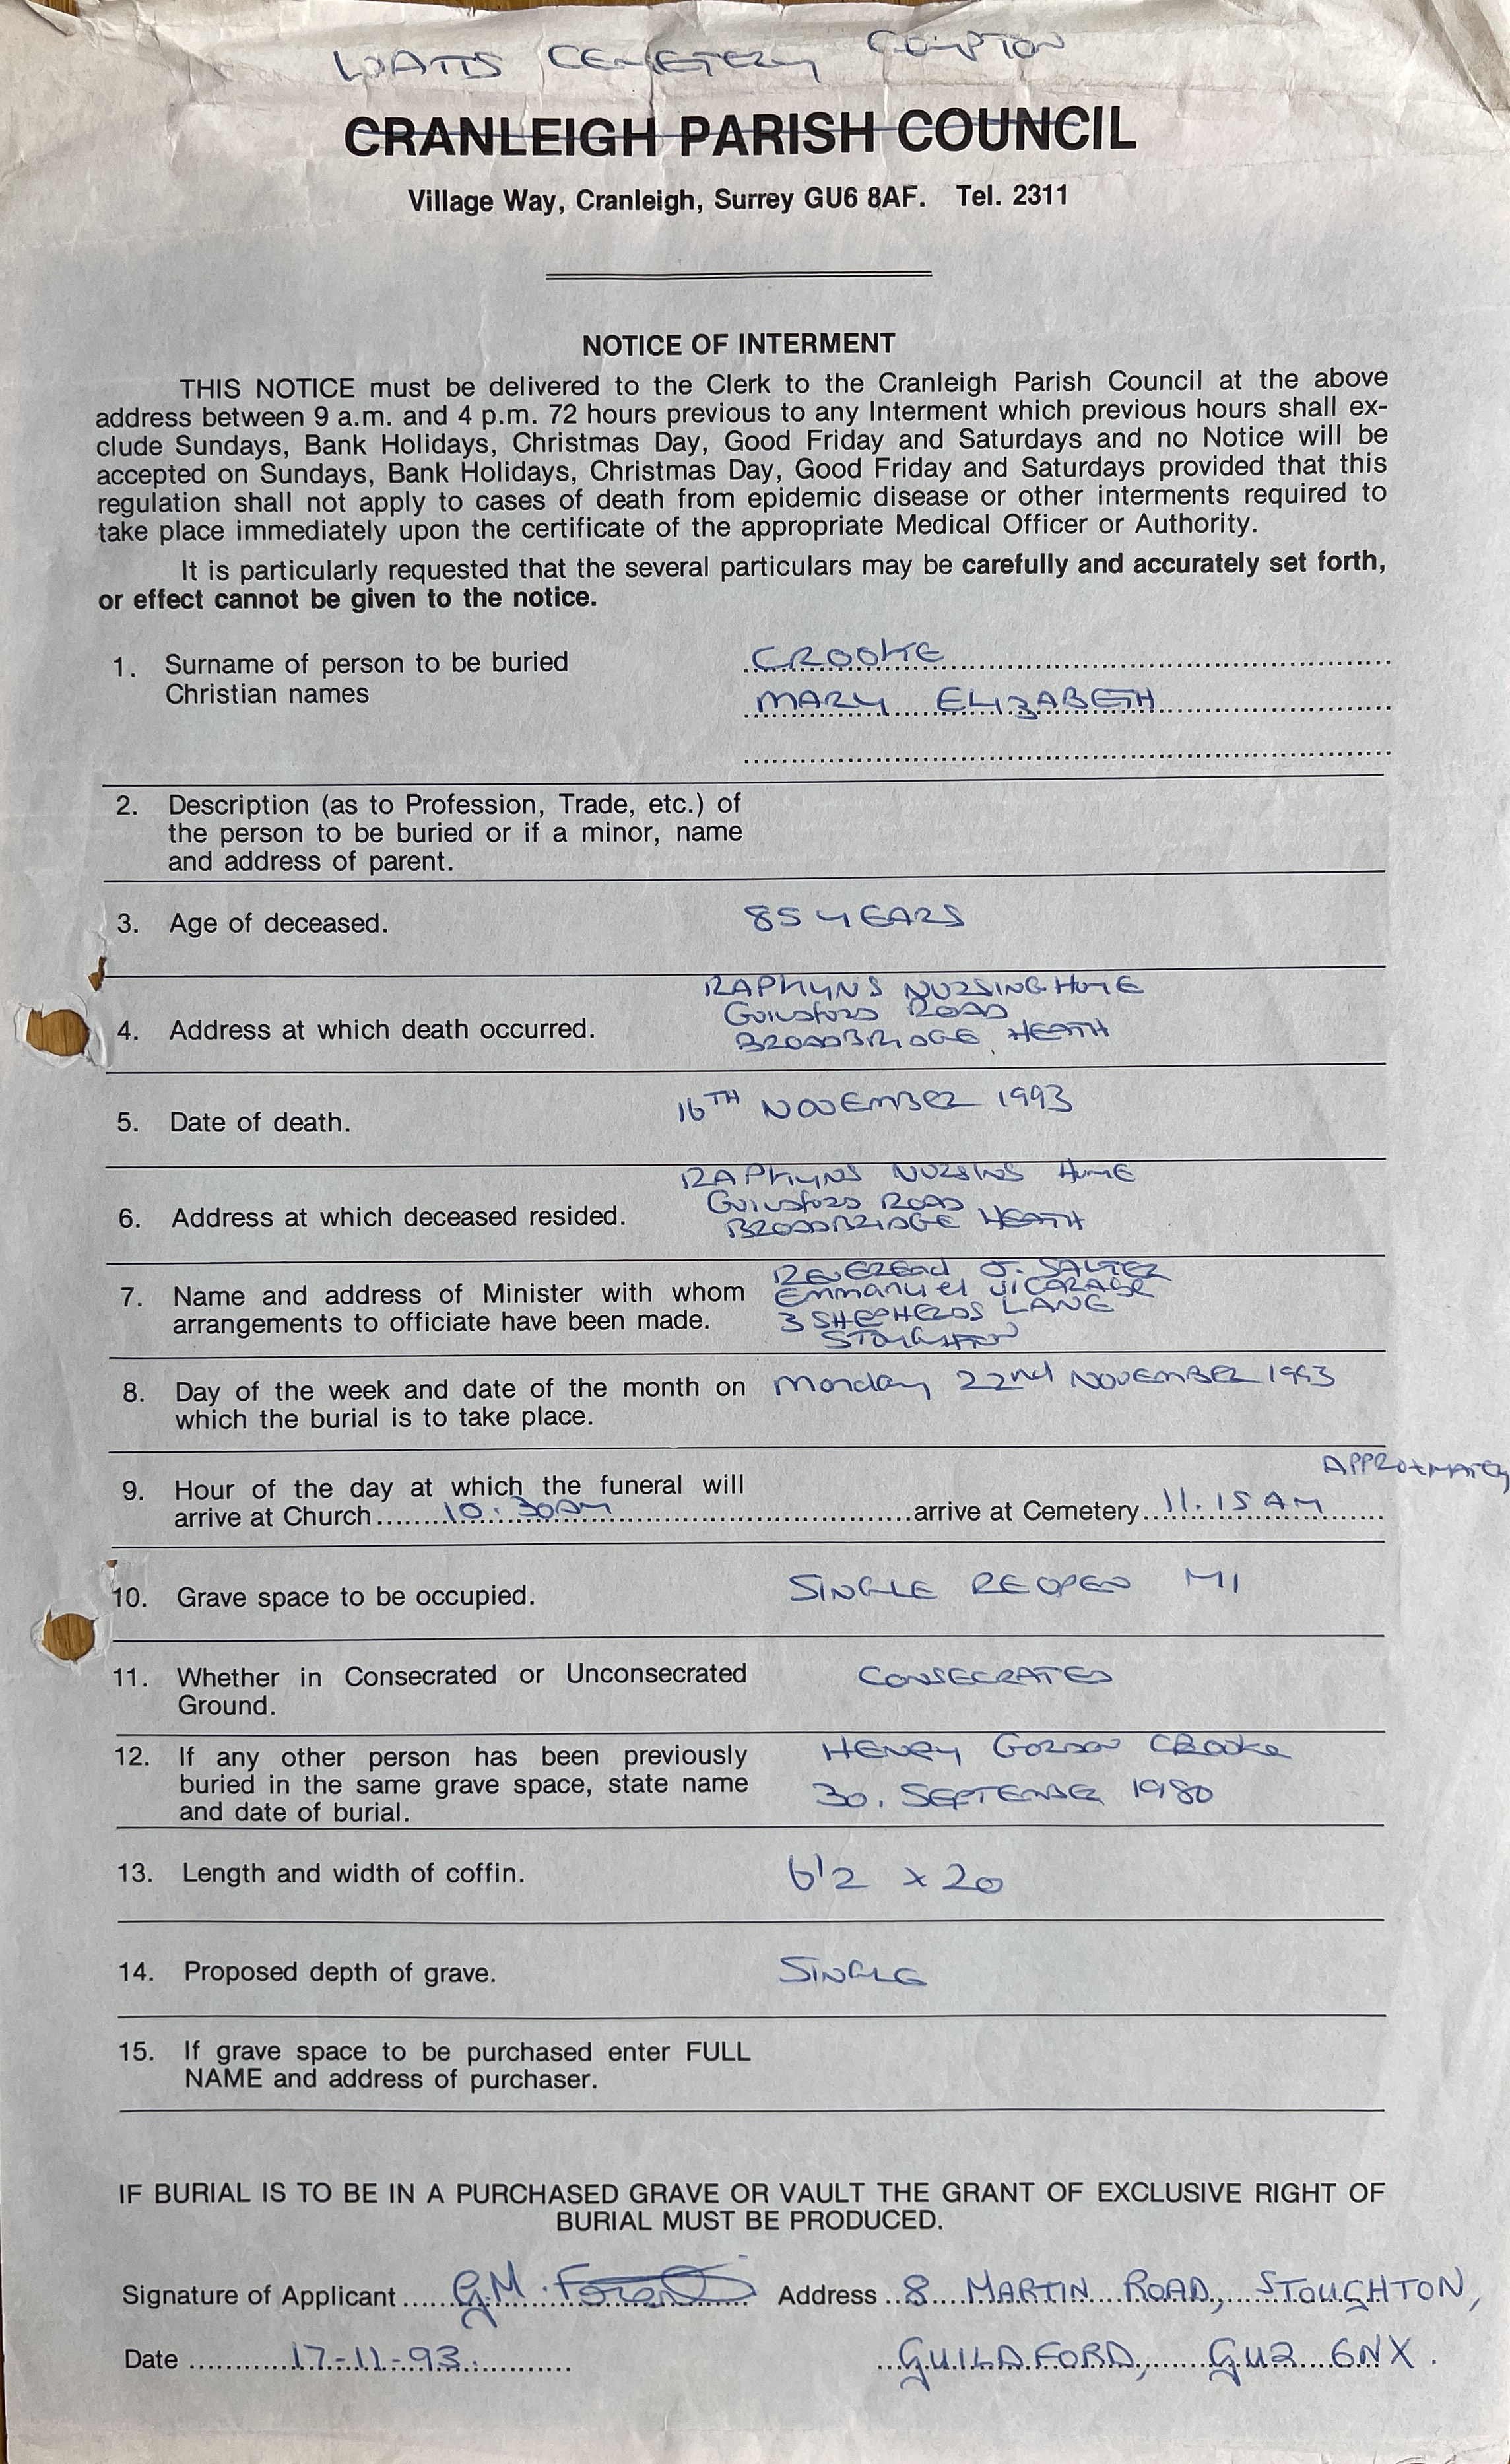 WATTS CEMETERY COMPTON
CRANLEIGH PARISH COUNCIL
Village Way, Cranleigh, Surrey GU6 8AF. Tel. 2311
NOTICE OF INTERMENT
THIS NOTICE must be delivered to the Clerk to the Cranleigh Parish Council at the above
address between 9 a.m. and 4 p.m. 72 hours previous to any Interment which previous hours shall ex-
clude Sundays, Bank Holidays, Christmas Day, Good Friday and Saturdays and no Notice will be
accepted on Sundays, Bank Holidays, Christmas Day, Good Friday and Saturdays provided that this
regulation shall not apply to cases of death from epidemic disease or other interments required to
take place immediately upon the certificate of the appropriate Medical Officer or Authority.
It is particularly requested that the several particulars may be carefully and accurately set forth,
or effect cannot be given to the notice.
1. Surname of person to be buried CROOKE
Christian names MARY ELIZABETH
2. Description (as to Profession, Trade, etc.) of
the person to be buried or if a minor, name
and address of parent.
3. Age of deceased. 85 YEARS
RAPKYNS NURSING HOME
GUILDFORD ROAD
4. Address at which death occurred. BROADBRIDGE HEATH
5. Date of death. 16TH NOVEMBER 1993
RAPKYNS NURSING HOME
GUILDFORD ROAD
6. Address at which deceased resided. BROADBRIDGE HEATH
REVEREND J. SALTER
7. Name and address of Minister with whom Emmanuel VICARAGE
arrangements to officiate have been made. 3 SHEPHERDS LANE
STOUGHTON
8. Day of the week and date of the month on Monday 22nd NOVEMBER 1993
which the burial is to take place.
APPROXIMATELY
9. Hour of the day at which the funeral will
arrive at Church 10:30AM arrive at Cemetery 11.15 AM
10. Grave space to be occupied. SINGLE REOPEN M1
11. Whether in Consecrated or Unconsecrated CONSECRATED
Ground.
12. If any other person has been previously HENRY GORDON CROOKE
buried in the same grave space, state name 30. SEPTEMBER 1980
and date of burial.
13. Length and width of coffin. 6'2 x 20
14. Proposed depth of grave. SINGLE
15. If grave space to be purchased enter FULL
NAME and address of purchaser.
IF BURIAL IS TO BE IN A PURCHASED GRAVE OR VAULT THE GRANT OF EXCLUSIVE RIGHT OF
BURIAL MUST BE PRODUCED.
Signature of Applicant G.M. Address 8 MARTIN ROAD, STOUGHTON,
Date 17-11-93. GUILDFORD, GU2 6NX.